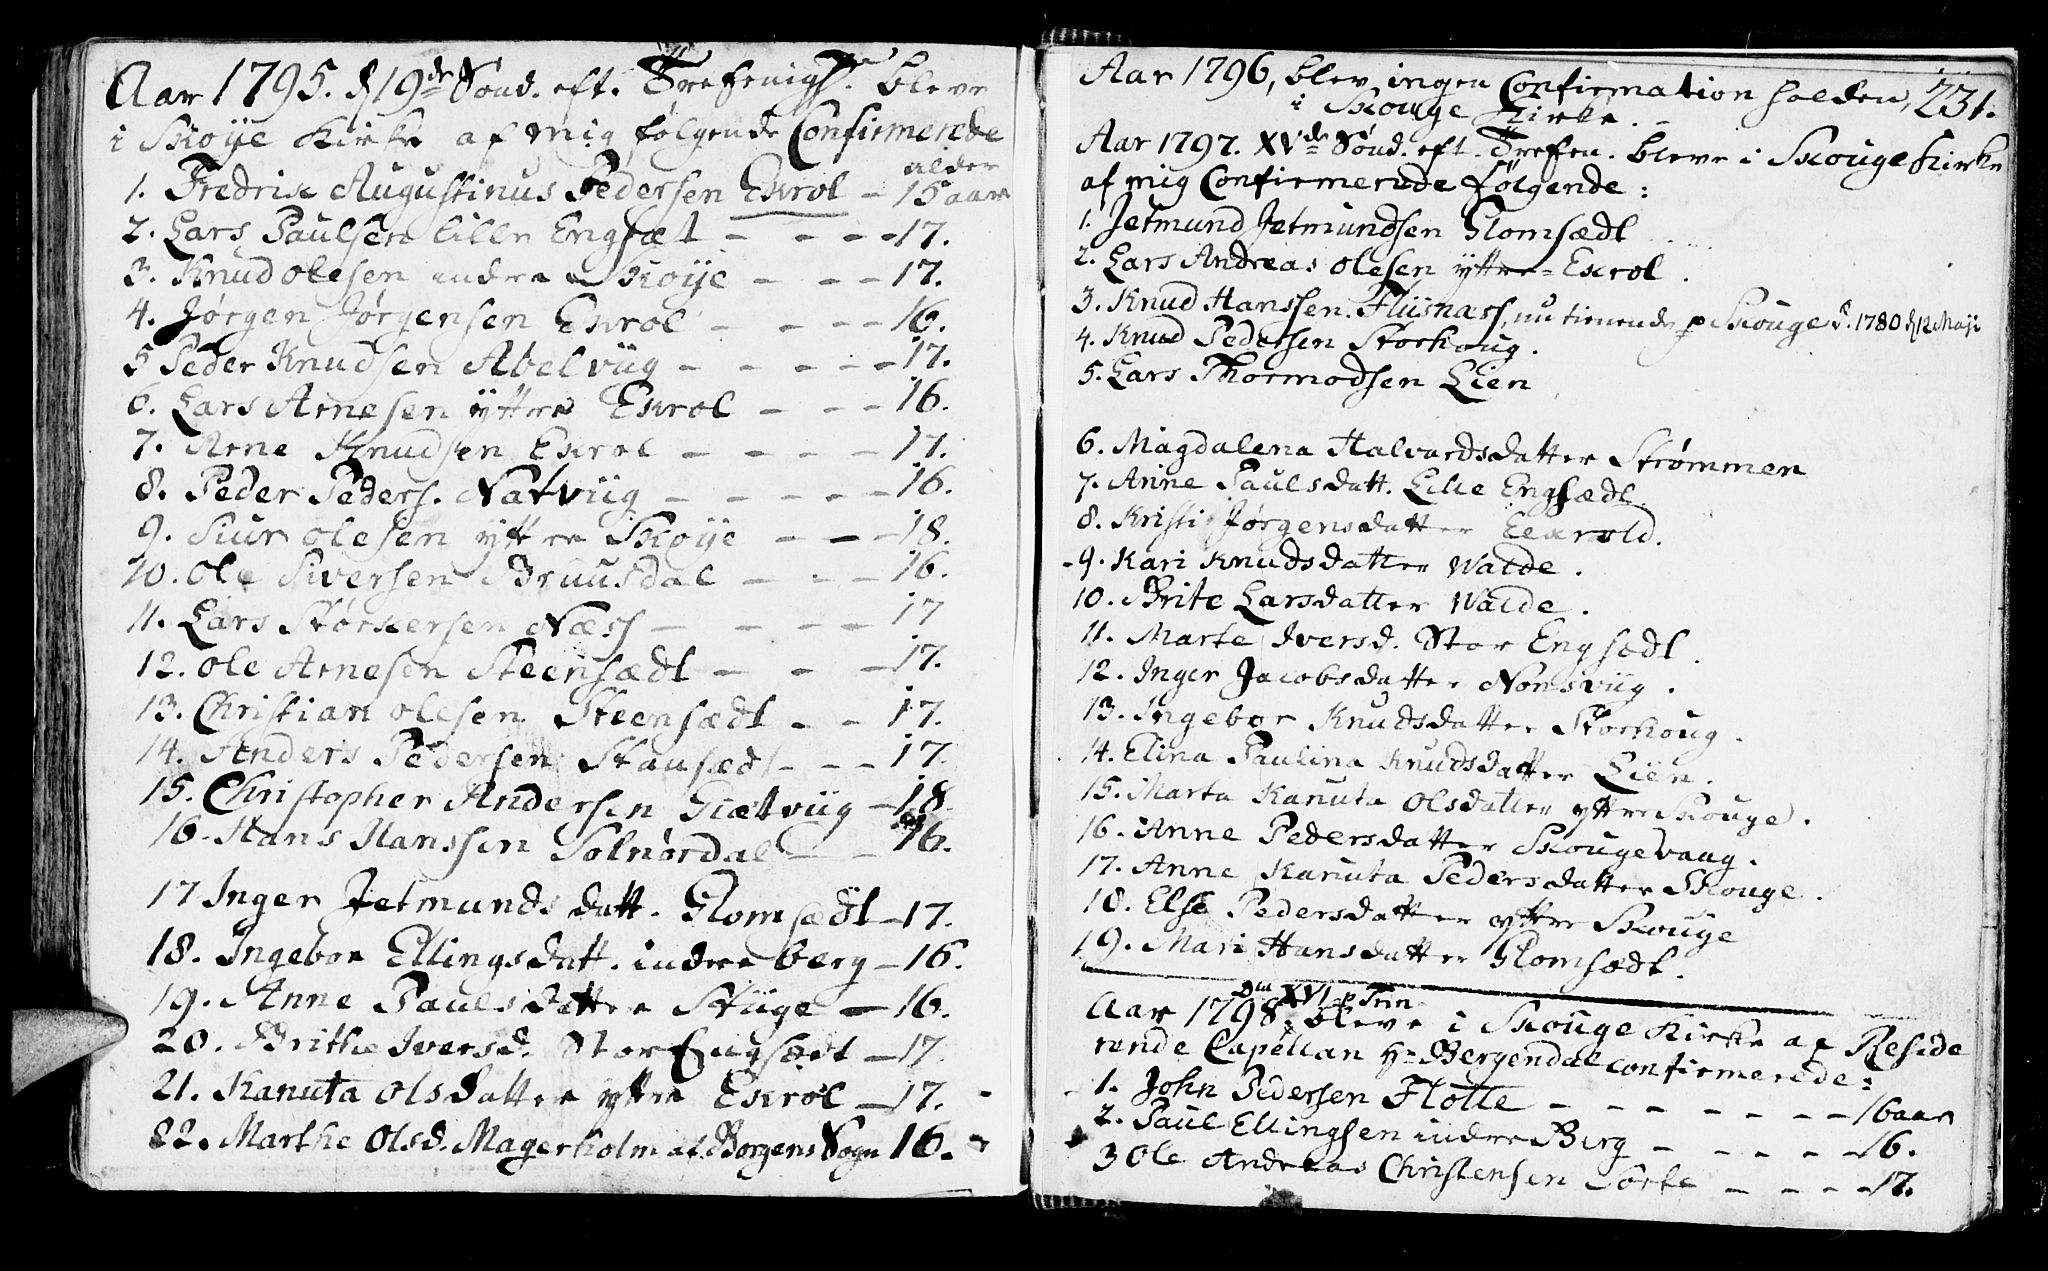 Aar 1795. d 19de Sønd. eft. Trefenigh. bleve
i Skoÿe Kirke af mig følgende Confirmerede
alder
1. Fredrik Augustinus Pedersen Exrol - 15 aar
2. Lars Paulsen lille Engsæt - - - - 17.
3. Knud olesen indre Skoÿe - - - 17.
4. Jørgen Jørgensen Exrol - - - - 16.
5 Peder Knudsen Abelviig - - - - - 17.
6. Lars Arnesen ÿttre Exrol - - - 16.
7. Arne Knudsen Exrol - - - - 17.
8. Peder Peders. Natviig - - - - - 16.
9. Siur olesen ÿttre Skoÿe - - - 18.
10. Ole Siversen Bruusdal - - - 16.
11. Lars Størkersen Næss - - - - 17
12. Ole Arnesen Steensædt - - - 17.
13. Christian olesen Steensædt - - 17.
14. Anders Pedersen Stausædt - - - 17.
15. Christopher Andersen Giætviig - 18.
16. Hans Hanssen Solnørdal - - 16.
17 Inger Jetmundsdatt. Glomsædt - 17.
18. Ingebor Ellingsdatt. indre berg - 16.
19. Anne Paulsdatter Stiige - 16.
20. Brithe Iversd. Stor Engsædt - 17.
21. Kanuta Olsdatter yttre Exrol - 17.
22. Marthe Olsd. Magerholm af Borgens Sogn 16.
Aar 1796, blev ingen Confirmation holden, 231.
i Skouge Kirke. -
Aar 1797. XVde Sønd. eft. Trefen. bleve i Skouge Kirke
af mig Confirmerede følgende:
1. Jetmund Jetmundsen Glomsædt
2. Lars Andreas olesen ÿttre-Exrol.
3. Knud Hanssen. Fliisnass, nu tienende p Skouge d. 1780 d 12 Maji
4. Knud Pedersen Storhoug.
5. Lars Thormodsen Lien
6. Magdalena Halvardsdatter Strømmen
7. Anne Paulsdatt. Lille Engsædt.
8. Kristi Jørgensdatter Eexrold.
9. Kari Knudsdatter Walde.
10. Brite Larsdatter Walde.
11. Marte Iversd. Stor Engsædt.
12. Inger Jacobsdatter Nonsviig.
13. Ingebor Knudsdatter Storhoug.
14. Elina Paulina Knudsdatter Lien.
15. Marta Kanuta Olsdatter yttre Skouge.
16. Anne Pedersdatter Skougevaag.
17. Anne Kanuta Pedersdatter Skouge.
18. Else Pedersdatter yttre Skouge
19. Mari Hansdatter Glomsædt.
Dm XVI p Trin
Aar 1798. bleve i Skouge Kirke af Reside
rende Capellan Hr Bergendal confirmerede:
1. John Pedersen Flotte - - - - - - - 16 aar
2. Paul Ellingsen indre Berg - - - - - 16.
3 Ole Andreas Christensen Sorte - - - - 17.